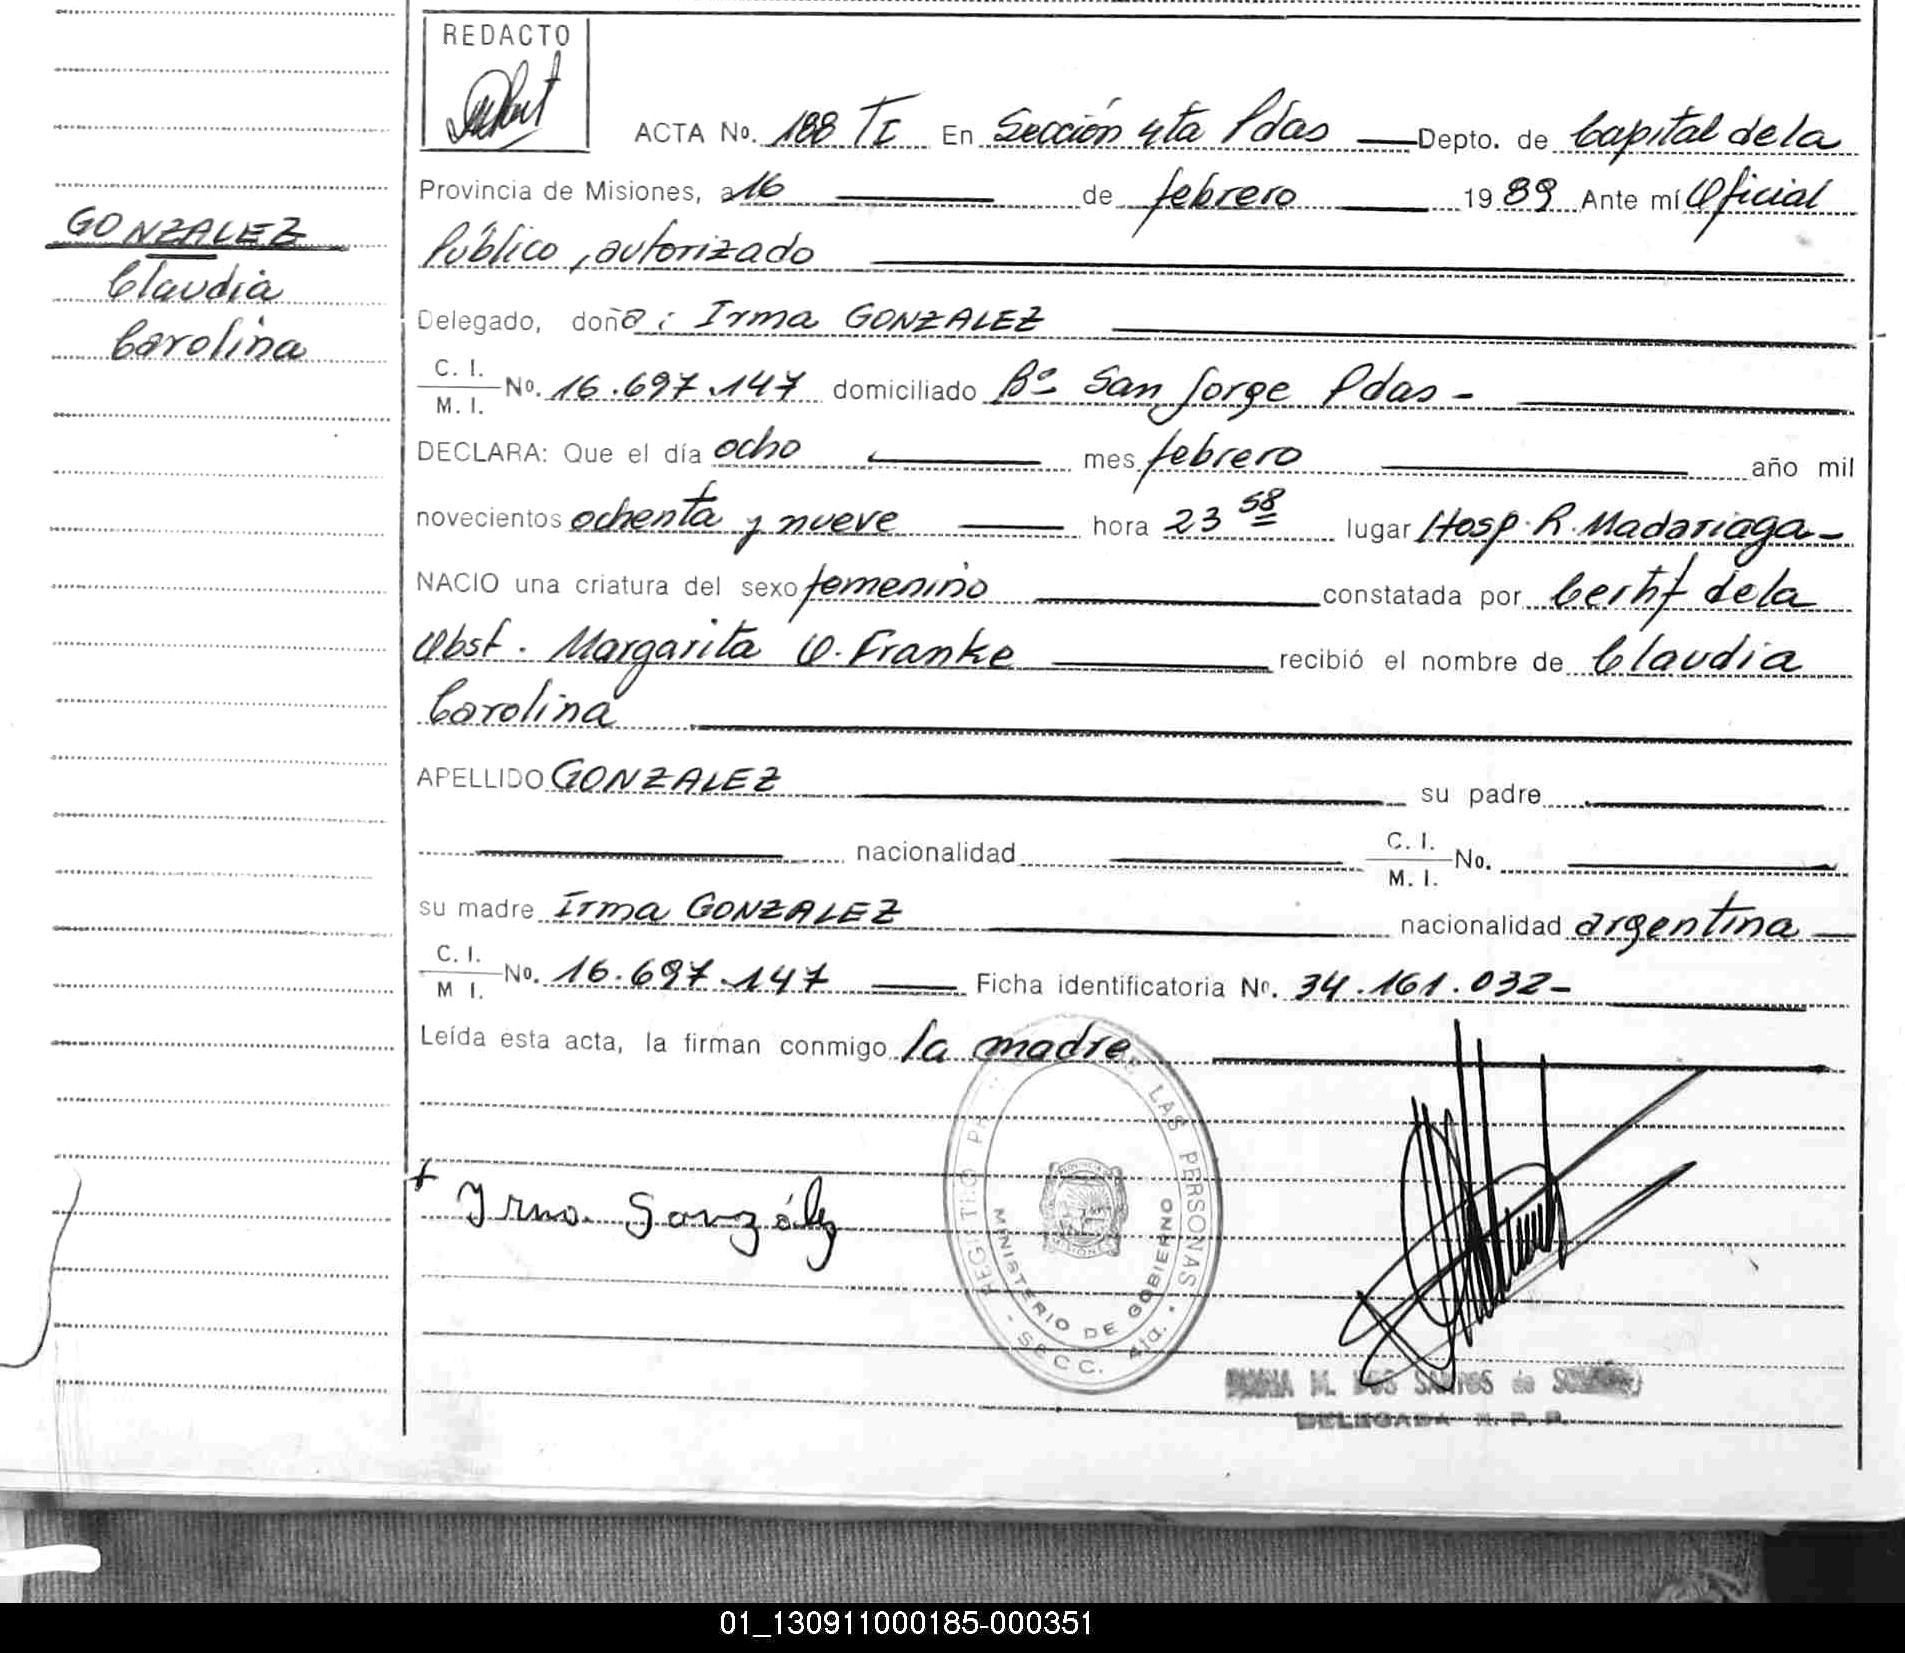 REDACTO
ACTA No. 188 TI En Sección 4ta Pdas Depto. de Capital de la
Provincia de Misiones, a 16 de febrero 1989 Ante mí Oficial
Público, autorizado
GONZALEZ
Claudia
Carolina
Delegado, doña: Irma GONZALEZ
C. I.
M. I. No. 16.697.147 domiciliado Bº San Jorge Pdas -
DECLARA: Que el día ocho mes febrero año mil
novecientos ochenta y nueve hora 23 58 lugar Hosp. R. Madariaga-
NACIO una criatura del sexo femenino constatada por Certif de la
Obst. Margarita O. Franke recibió el nombre de Claudia
Carolina
APELLIDO GONZALEZ su padre
nacionalidad C. I.
M. I. No.
su madre Irma GONZALEZ nacionalidad argentina
C. I.
M I. No. 16.697.147 Ficha identificatoria No. 34.161.032-
Leída esta acta, la firman conmigo la madre
LAS PERSONAS
MINISTERIO DE GOBIERNO
- SECC. 4ta. -
PROVINCIA
MISIONES
Irma González
M. DOS SANTOS de
DELEGADA R. P. P.
01_130911000185-000351